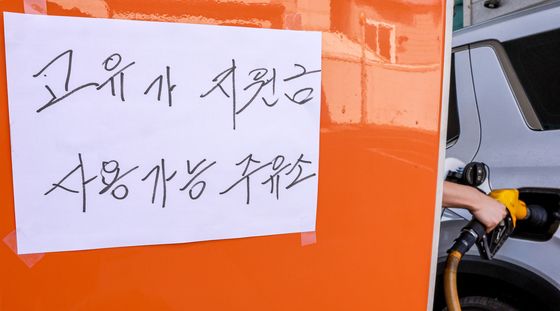 고유가 지원금
사용가능 주유소